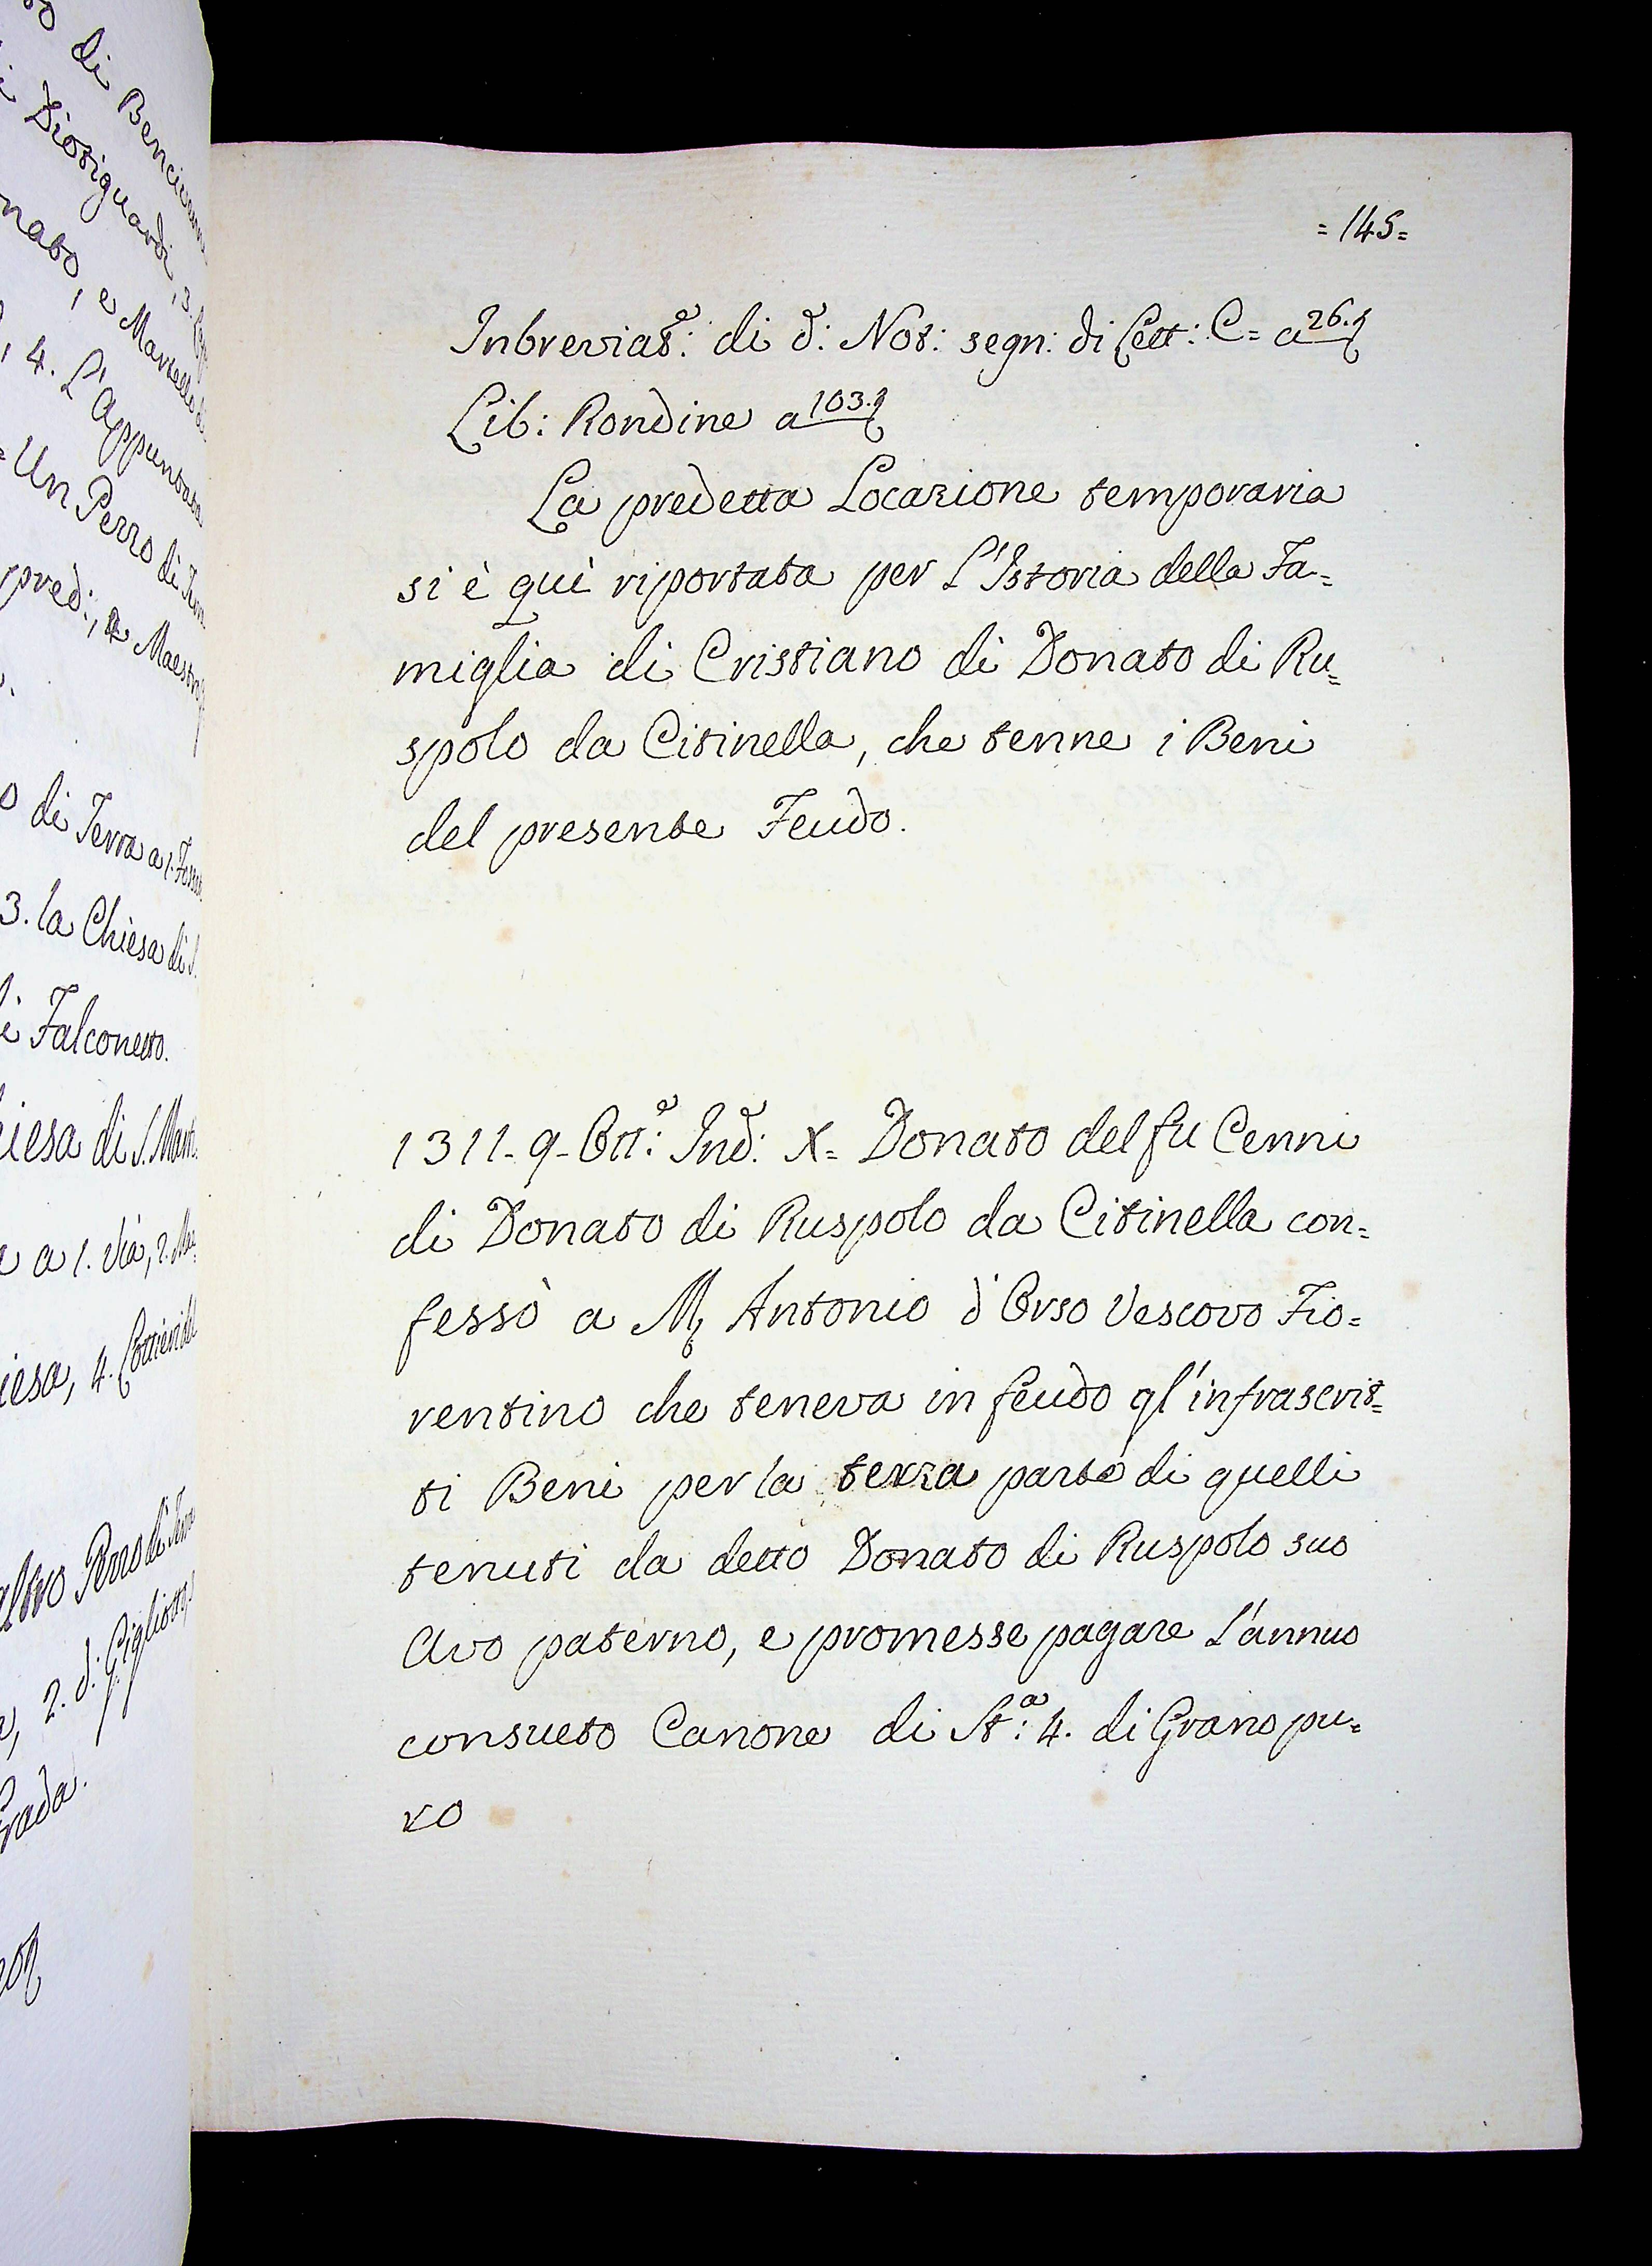 o di Bencivenn
i Diotiguardi, 3.
nato, e Martello di
, 4. L'Appuntata
= Un Pezzo di Terr
pred:, a Maestro
o di Terra a 1. Fossa
3. la Chiesa di S.
i Falconetto.
iesa di S. Mart:
a 1. Via, 2.
iesa, 4.
altro Pezzo di Terra
, 2. d: Gigliotto
Grada.
= 145 =
Inbreviat:e di d: Not: segn: di Lett: C = a 26.
Lib: Rondine a 103.
La predetta Locazione temporaria
si è quì riportata per L'Istoria della Fa=
miglia di Cristiano di Donato di Ru=
spolo da Citinella, che tenne i Beni
del presente Feudo.
1311. 9. Ott:e Ind: X = Donato del fu Cenni
di Donato di Ruspolo da Citinella con=
fessò a M. Antonio d'Orso Vescovo Fio=
rentino che teneva in feudo gl'infrascrit=
ti Beni per la terza parte di quelli
tenuti da detto Donato di Ruspolo suo
Avo paterno, e promesse pagare L'annuo
consueto Canone di St:a 4. di Grano pu=
ro